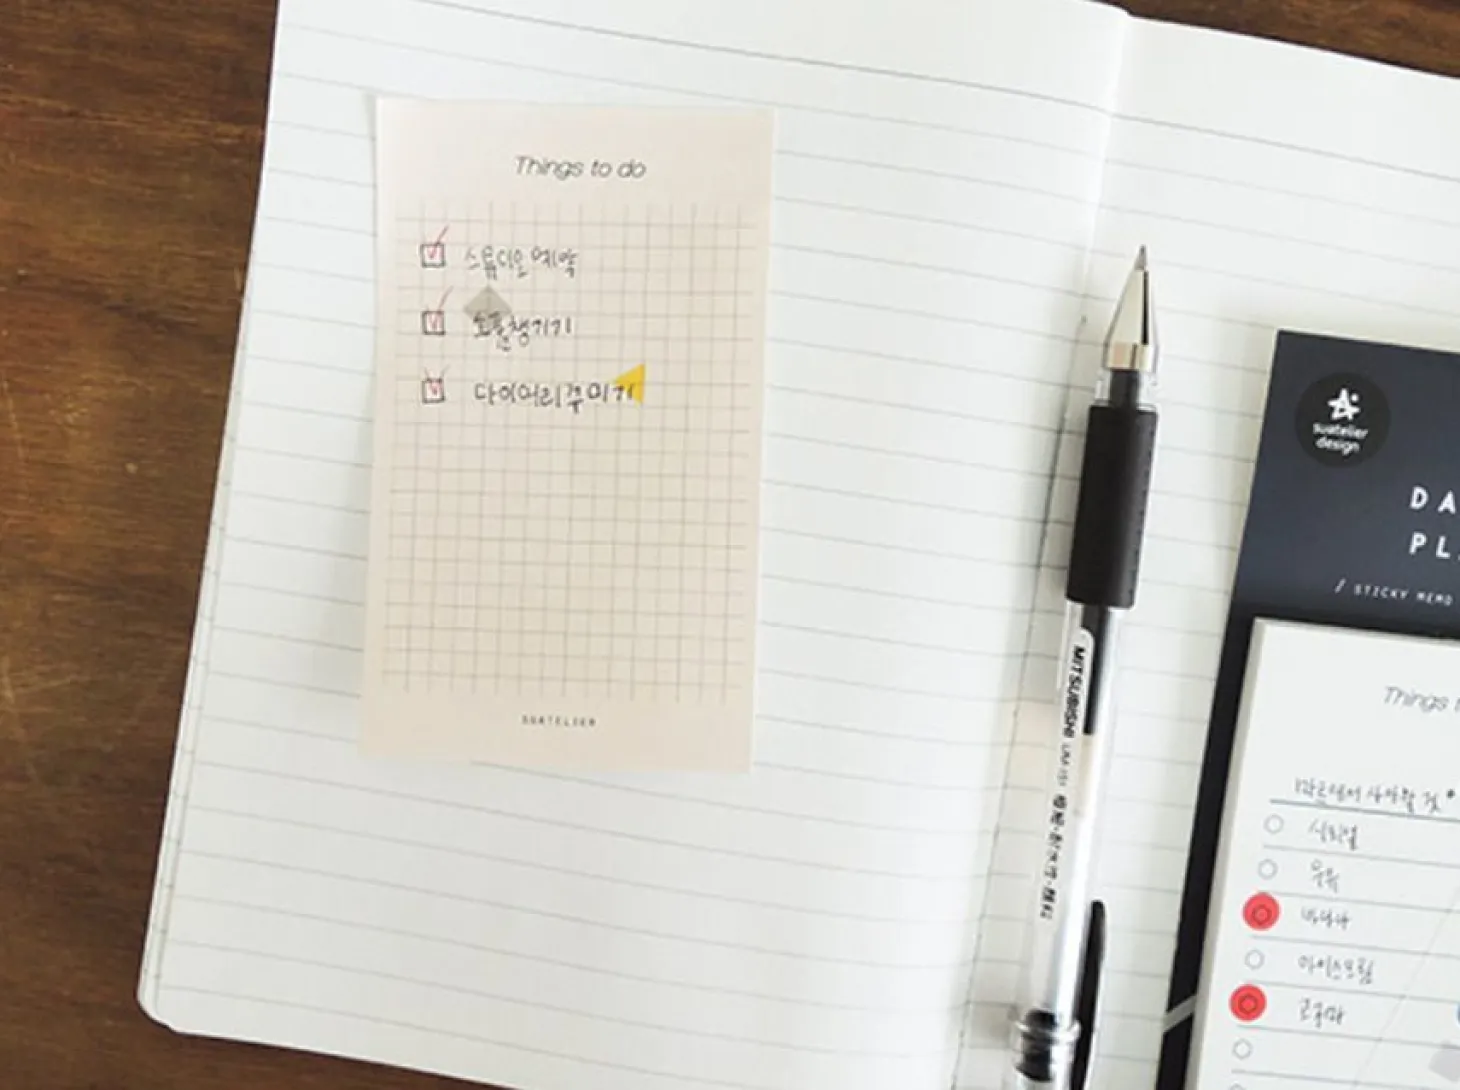 Things to do
스튜디오 예약
소품챙기기
다이어리꾸미기
SUATELIER
MITSUBISHI
suatelier
design
DA
PL
/ STICKY MEMO
Things t
마트에서 사야할 것
식빵
우유
바나나
아이스크림